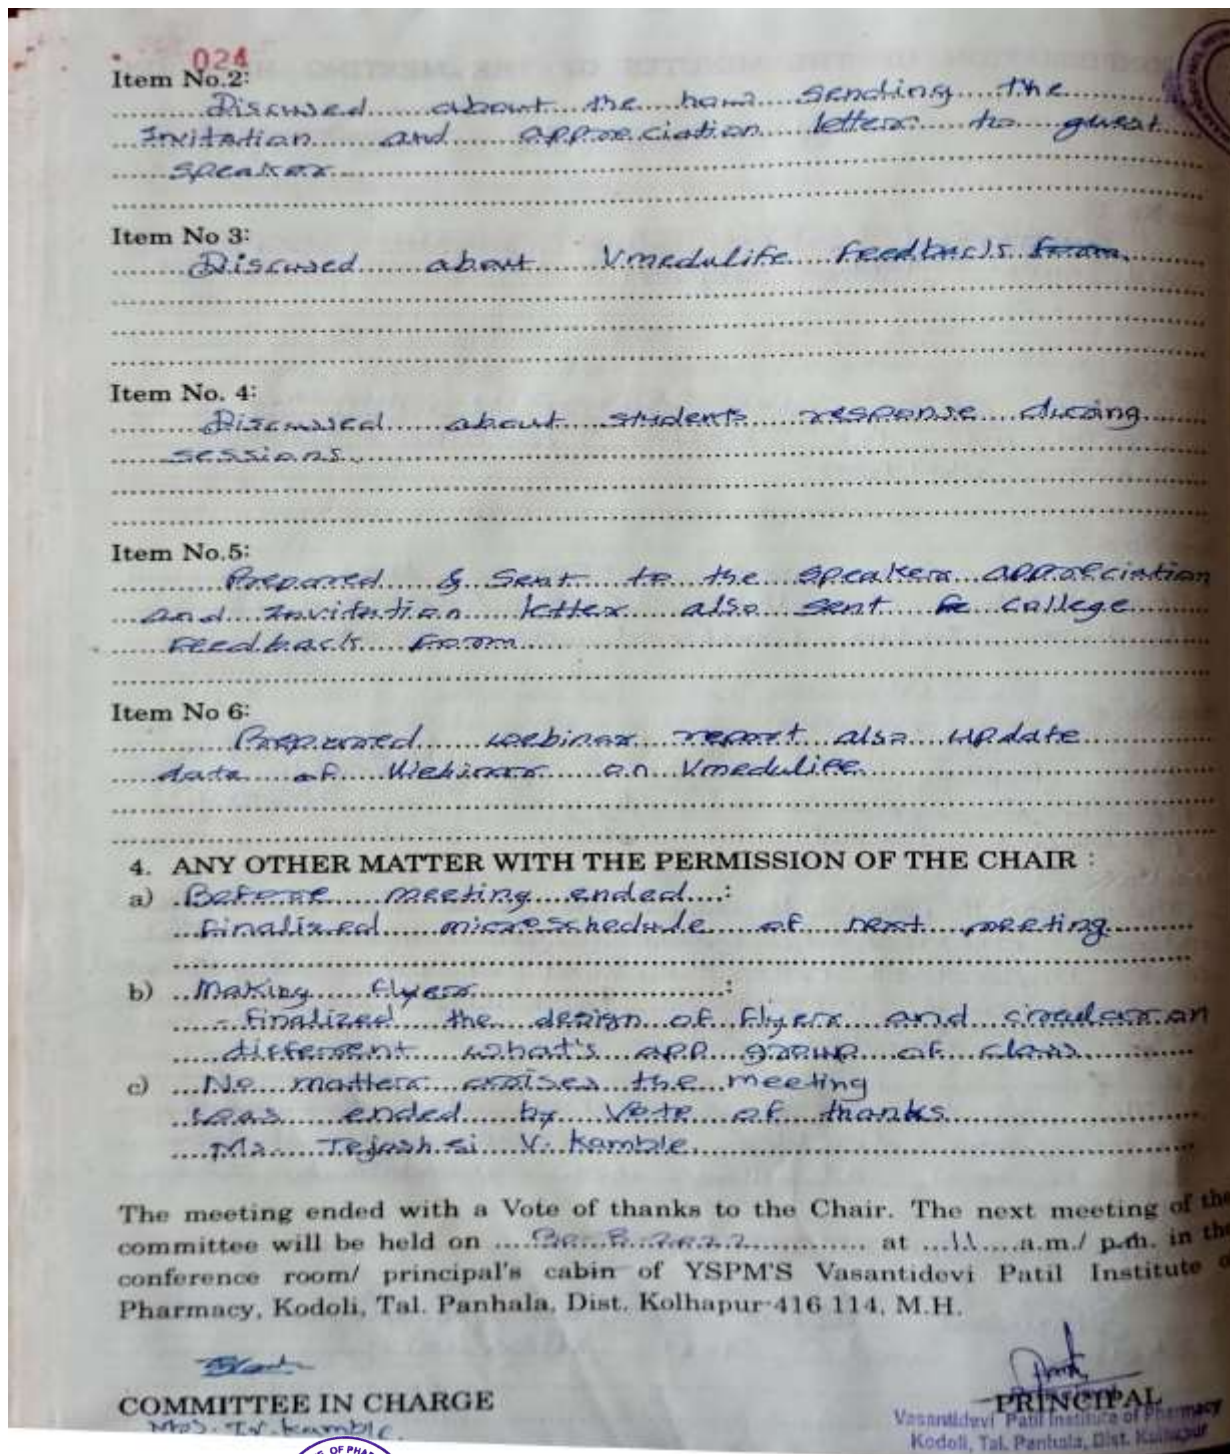 024
Item No.2:
Discused about the how sending the
Invitation and appreciation letter to guest
speaker
Item No 3:
Discused about Vmedulife Feedback from
Item No. 4:
Discussed about students response during
sessions
Item No.5:
Prepared & sent to the speakers appreciation
and Invitation letter also sent college
Feedback from
Item No 6:
Prepared webinar report also update
data of Webinar on Vmedulife
4. ANY OTHER MATTER WITH THE PERMISSION OF THE CHAIR :
a) Before meeting ended :
Finalized schedule of next meeting
b) Making flyers :
- Finalized the design of flyers and on
different what's app group of class
c) No matters arises the meeting
was ended by Vote of thanks
V. Kamble
The meeting ended with a Vote of thanks to the Chair. The next meeting of the
committee will be held on at 11 a.m./ p.m. in the
conference room/ principal's cabin of YSPM'S Vasantidevi Patil Institute
Pharmacy, Kodoli, Tal. Panhala, Dist. Kolhapur-416 114, M.H.
COMMITTEE IN CHARGE
Kamble
PRINCIPAL
Vasantidevi Patil Institute of Pharmacy
Kodoli, Tal. Panhala, Dist. Kolhapur
OF